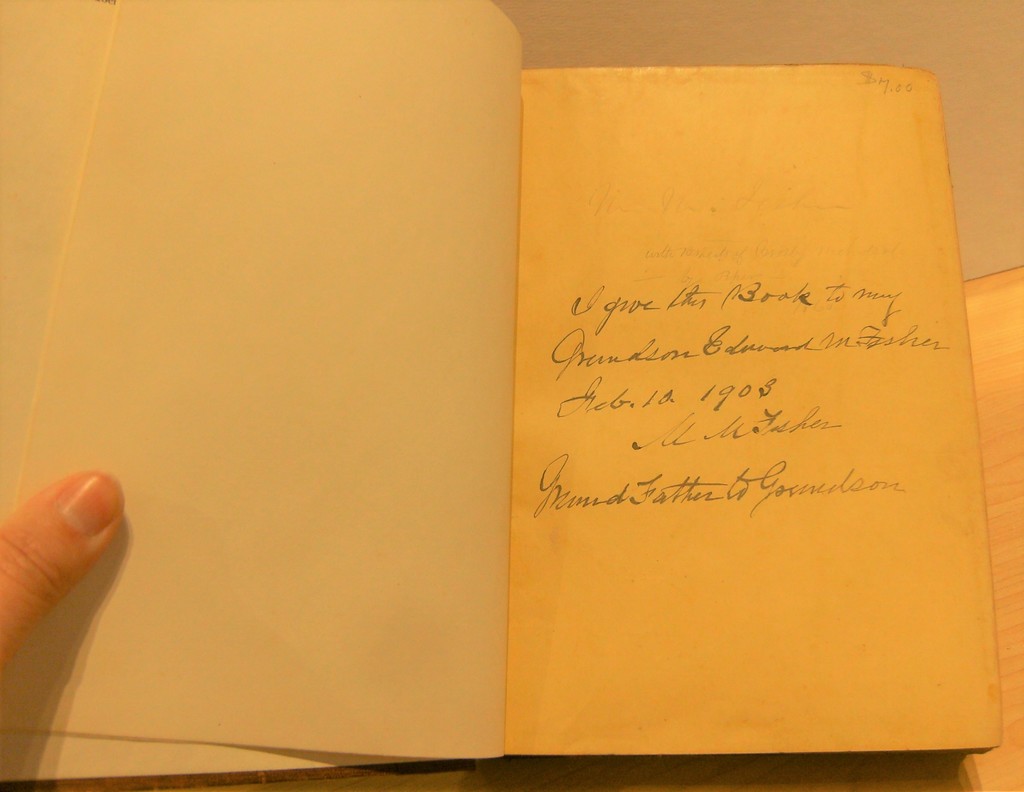 $7.00
I give this Book to my
Grandson Edward M Fisher
Feb. 10. 1903
M M Fisher
Grand Father to Grandson